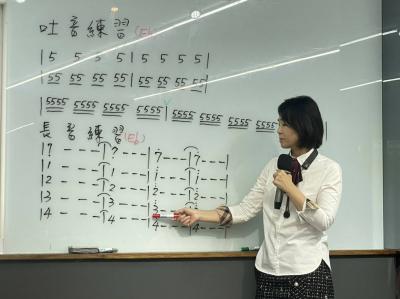 吐音練習(Eb)
| 5 5 5 5 | 5 5 5 5 |
| 55 55 55 55 | 55 55 55 55 |
| 5555 5555 5555 5555 | 5555 5555 5555
長音練習(Eb)
| 7 - - - | 7 - - - | 7 - - - | 7 - - - |
| 1 - - - | 1 - - - | 1 - - - | 1 - - - |
| 2 - - - | 2 - - - | 2 - - - | 2 - - - |
| 3 - - - | 3 - - - | 3 - - - | 3 - - - |
| 4 - - - | 4 - - - | 4 - - - | 4 - - - |